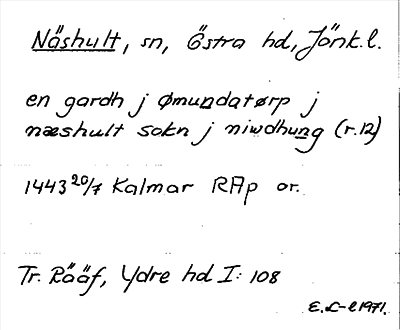 Näshult, sn, Östra hd, Jönk.l.
en gardh j ømundatørp j
næshult sokn j niwdhung (r.12)
1443 20/7 Kalmar RAp or.
Tr. Rääf, Ydre hd I: 108
E. L-l 1971.